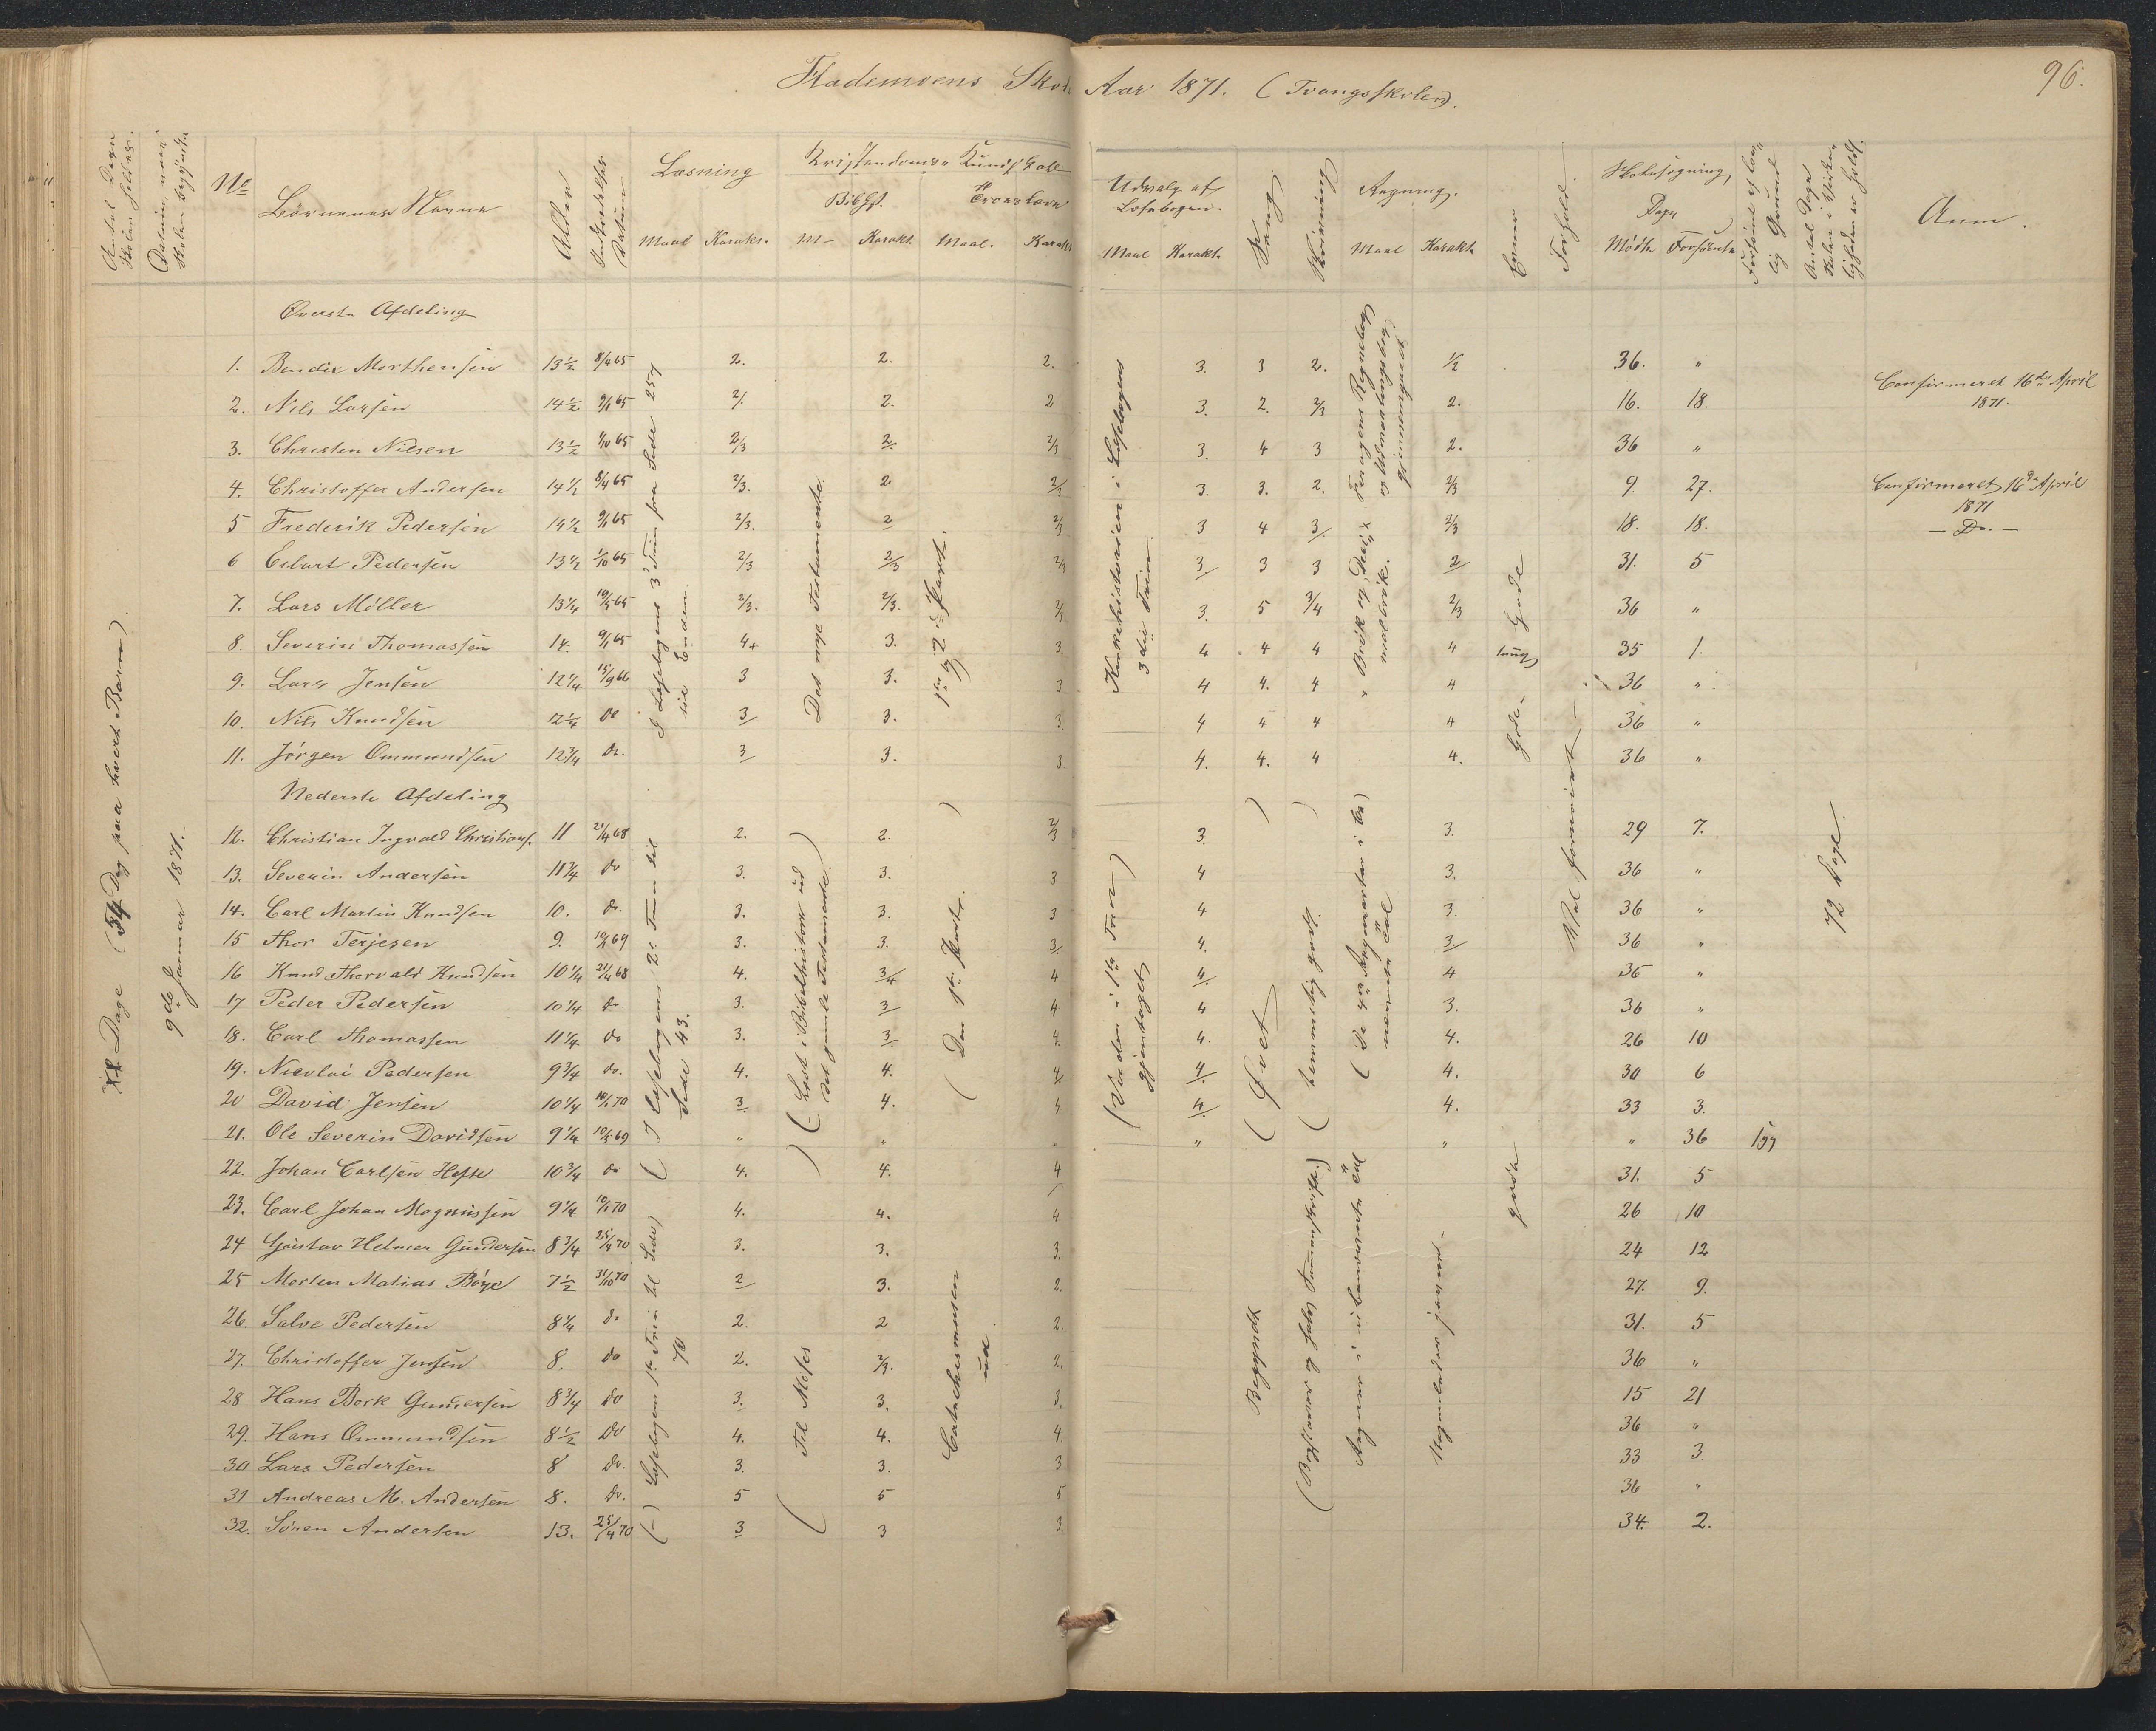 Skole Aar 1871. (Tvangsskolen).
96.
Antal Dage Skolen holdes.
Datum, naar Skolen begyndte
No
Børnenes Navne
Alder
Indtrædelses Datum
Læsning
Maal Karakt.
Kristendoms Kundskab
Bibhst. Troeslære
M— Karakt. Maal. Karakt
Udvalg af Læsebogen.
Maal Karakt.
Sang.
Skrivning
Regning.
Maal Karakt.
Evner
Forhold.
Skolesøgning
Dage
Mødte Forsømte
Forsømt af lovlig Grund
Antal Dage Skolen i Virkeligheden er holdt.
Anm.
Øverste Afdeling
1. Bendix Morthensen 13½ 8/4 65 2. 2. 2. 3. 3 2. ½ 36. "
2. Nils Larsen 14½ 9/1 65 2/. 2. 2 3. 2. 2/3 2. 16. 18. Confirmeret 16de April 1871.
3. Christen Nilsen 13½ 65 2/3 2. 2/3 3. 4 3 2. 36 "
4. Christoffer Andersen 14½ 8/4 65 2/3. 2 2/3 3. 3. 2. 2/3 9. 27. Confirmeret 16de April 1871
5 Frederik Pedersen 14½ 9/1 65 2/3. 2 2/3 3 4 3/. 2/3 18. 18. — Do. —
6 Edart Pedersen 13½ 65 2/3 2/3 2/3 3/ 3 3 2/ 31. 5
7. Lars Möller 13¼ 10/5 65 2/3. 2/3. 2/3 3. 5 3/4 2/3 36 "
8. Severin Thomassen 14. 9/1 65 4+ 3. 3. 4 4 4 4 tung 35 1.
9. Lars Jensen 12¼ 15/9 66 3 3. 3 4 4. 4 4 36 "
10. Nils Knudsen 12¼ do 3/ 3. 3. 4 4 4 4 36 "
11. Jørgen Ommundsen 12¾ do. 3/ 3. 3. 4. 4. 4 4. 36 "
Nederste Afdeling
12. Christian Ingvald Christians. 11 21/4 68 2. 2. 2/3 3. 3. 29 7.
13. Severin Andersen 11¾ do 3. 3. 3 4 3. 36 "
14. Carl Martin Knudsen 10. do. 3. 3. 3 4 3. 36 "
15 Thor Terjesen 9. 69 3. 3. 3/. 4. 3/ 36 "
16 Knud Thorvald Knudsen 10¼ 21/4 68 4. 3/4 4 4/. 4 36 "
17 Peder Pedersen 10¼ do 3. 3/ 4 4 3. 36 "
18. Carl Thomassen 11¼ do 3. 3/ 4. 4. 4. 26 10
19. Nicolai Pedersen 9¾ do. 4. 4. 4/ 4/. 4. 30 6
20 David Jensen 10¼ 10/1 70 3/ 4. 4 4/. 4. 33 3.
21. Ole Severin Davidsen 9¼ 69 " " " " " " 36 syg
22. Johan Carlsen Hefte 10¾ do 4. 4. 4 31. 5
23. Carl Johan Magnussen 9¼ 10/1 70 4. 4. 4. 26 10
24 Gustav Helmer Gundersen 8¾ 25/4 70 3. 3. 3. 24 12
25 Morten Matias Böye 7½ 31/10 70 2/ 3. 2. 27. 9.
26. Salve Pedersen 8¼ do 2. 2 2. 31. 5
27. Christoffer Jensen 8. do 2. 2/3. 2. 36 "
28 Hans Bork Gundersen 8¾ do 3. 3. 3. 15 21
29. Hans Ommundsen 8½ do 4. 4. 4. 36 "
30 Lars Pedersen 8 do. 3. 3. 3 33 3.
31 Andreas M. Andersen 8. do. 5 5 5 36 "
32. Sören Andersen 13. 25/4 70 3 3 3. 34. 2.
Dage (34 Dag paa hvert Barn).
9de Januar 1871.
I Læsebogens 3die Trin fra Side 257 til Enden
Det nye Testamente.
1ste og 2den Part.
Kirkehistorien i Læsebogens 3die Trin
Brøk og Decimalbrøk.
Gode
Gode
Vel forsvint
(I Læsebogens 2det Trin til Side 43.
(Læst i Bibelhistorie ud det gamle Testamente.)
(Den 1ste Part.)
(Verden i 1ste Trin gjentaget)
(Øvet)
(temmelig godt.)
(De 4re Regnearter i
72 Dage.
(—) Læsebogens 1ste Trin til Side) 70
(Til Moses
Catechismusen ud.
Begyndt
(Bogstaver og Sammenskrift.)
Regner i ubenævnte Tal
gode